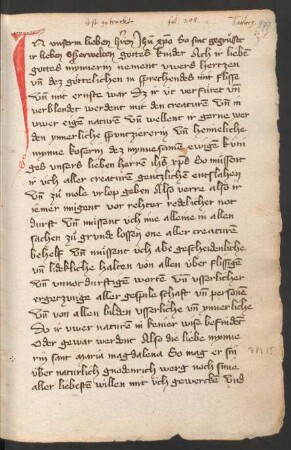 ist gedruckt fol. 208.
In unserm lieben hern Jhu xpo So sint gegrüsset
ir lieben ußerwelten gottes kinder Ach ir lieben
gottes mynnerin nement uwers hertzen
und dez götttelichen in sprechendes mit flisse
und mit ernste war Daz ir üt verfüret und
verblendet werdent mit den creaturen und in
uwer eigin naturen und wellent ir gerne wer
den ynnerliche und heimeliche
mynne dez mynnesamē ewigē
unsers lieben herrē ihū xpē So müssent
ir uch aller creaturen gentzliche entslahen
und zů mole urlop geben Also verre also ir
iemer mügent vor rehter redelicher not
durft Und müssent uch me alleine in allen
sachen zů grund lossen one aller creaturē
behelf Und müssent uch abe gescheidenliche
un lideklliche halten von allen über flissigen
und unnotdurftigen wortē und usserlicher
ergetzunge aller gespile schaft und personē
und von allen bilden usserliche und ynnerliche
So ir uwer naturē in keiner wise befindent
Oder gewar werdent Also die liebe mynne
rin sant maria magdalena So mag er sin
über naturlich gnodenrich werg noch sime
aller liebesten willen mit uch gewercken Und